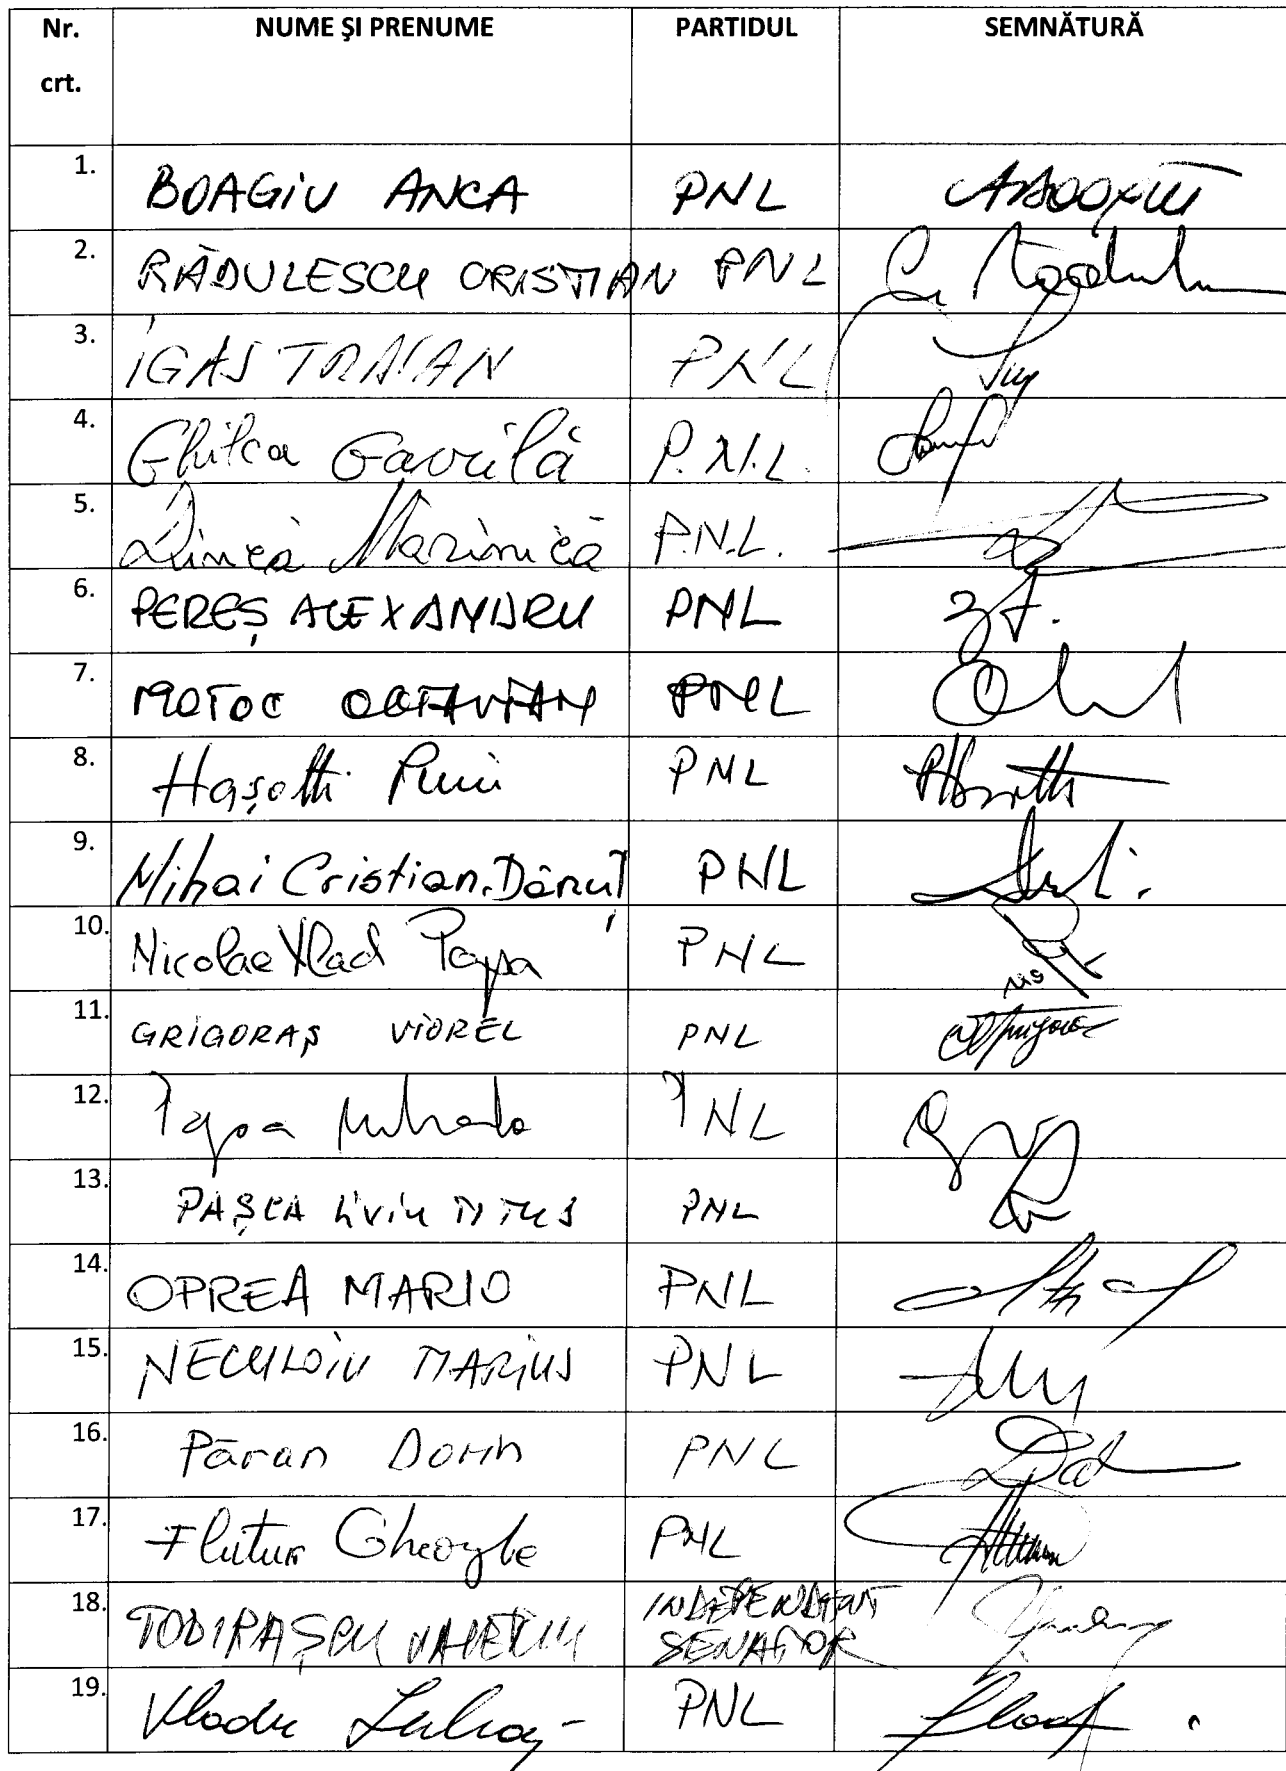 Nr. crt. NUME ŞI PRENUME PARTIDUL SEMNĂTURĂ
1. BOAGIU ANCA PNL
2. RĂDULESCU CRISTIAN PNL
3. IGAS TRAIAN PNL
4. Ghilea Gavrilă P.N.L.
5. Dincă Mărinică P.N.L.
6. PEREȘ ALEXANDRU PNL
7. MOTOC OCTAVIAN PNL
8. Hașotti Puiu PNL
9. Mihai Cristian-Dănuț PNL
10. Nicolae Vlad Popa PNL
11. GRIGORAȘ VIOREL PNL
12. Popa Mihaela PNL
13. PAȘCA LIVIU TITUS PNL
14. OPREA MARIO PNL
15. NECULOIU MARIUS PNL
16. Păran Dorin PNL
17. Flutur Gheorghe PNL
18. TODIRAȘCU VALERIU INDEPENDENT SENATOR
19. Vladu PNL